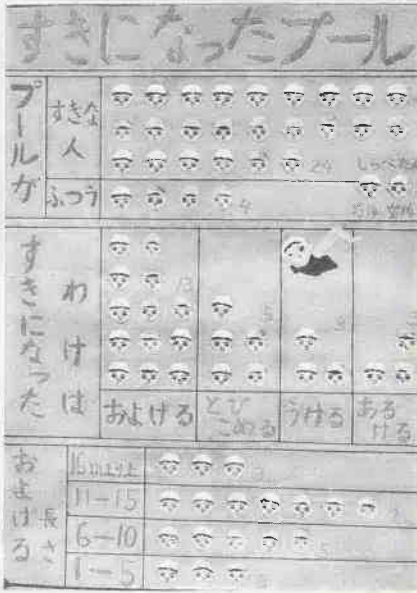 すきになったプール
プールが
すきな
人
24
ふつう
4
すきになった
わけは
13
5
3
およげる
とび
こめる
うける
ある
ける
およげる
長さ
15以上
3
11-15
7
6-10
5
1-5
3